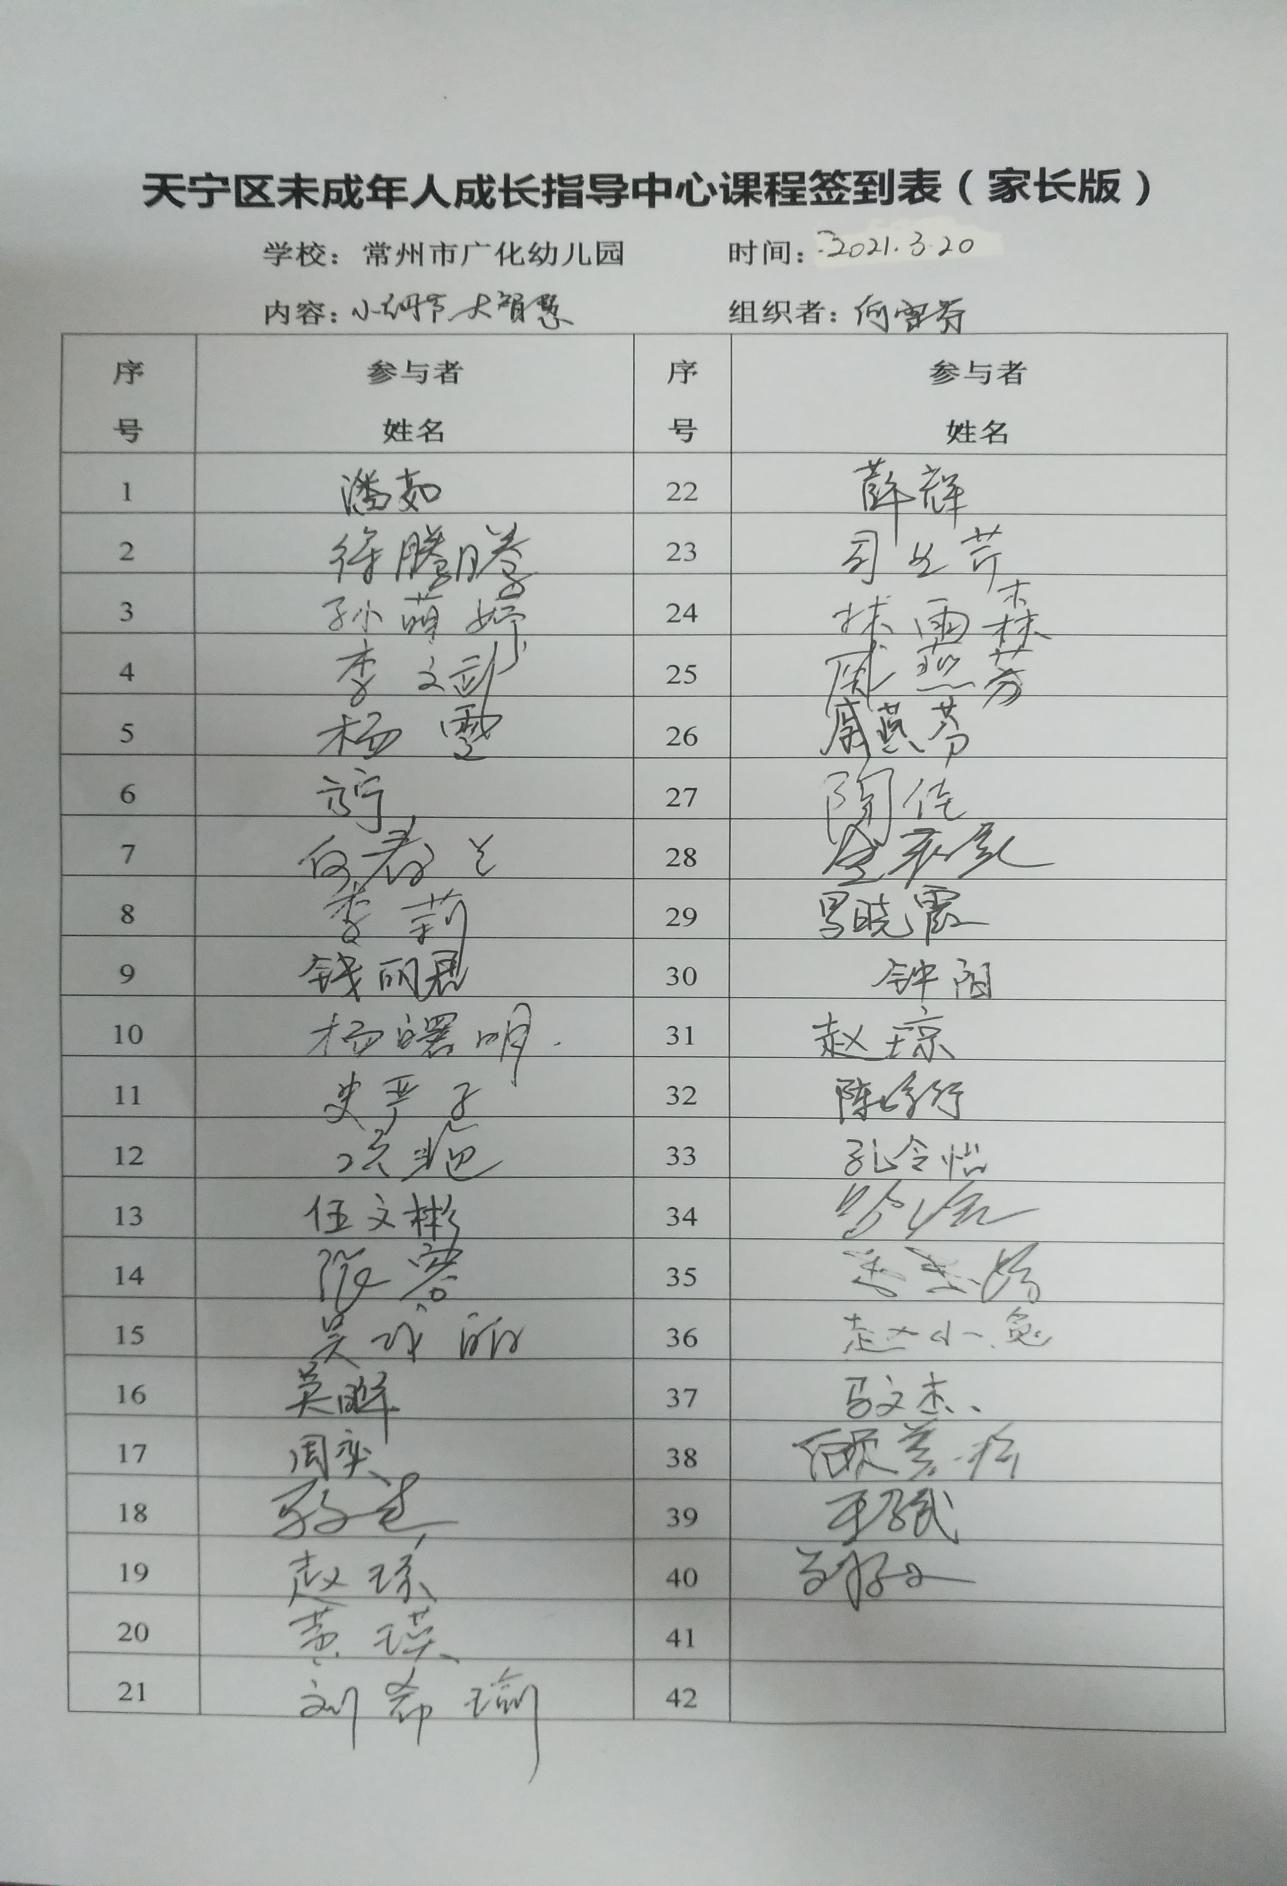 天宁区未成年人成长指导中心课程签到表（家长版）
学校：常州市广化幼儿园 时间：2021.3.20
内容：小细节大智慧 组织者：何雪芬
序号 参与者姓名 序号 参与者姓名
1 潘茹 22 薛辉
2 徐腾腾 23 司芹
3 孙萌婷 24 林雨森
4 李文武 25 戚燕芬
5 杨雪 26 戚燕芬
6 27 陶佳
7 何春兰 28
8 李莉 29 马晓霞
9 钱丽君 30 钟阳
10 杨曙明 31 赵琼
11 史严子 32 陈
12 33 孔令怡
13 伍文彬 34
14 张蓉 35
15 吴成丽 36 赵小兔
16 英晔 37 马文杰
17 周奕 38 顾美玲
18 39
19 赵琼 40
20 黄瑛 41
21 刘希瑜 42